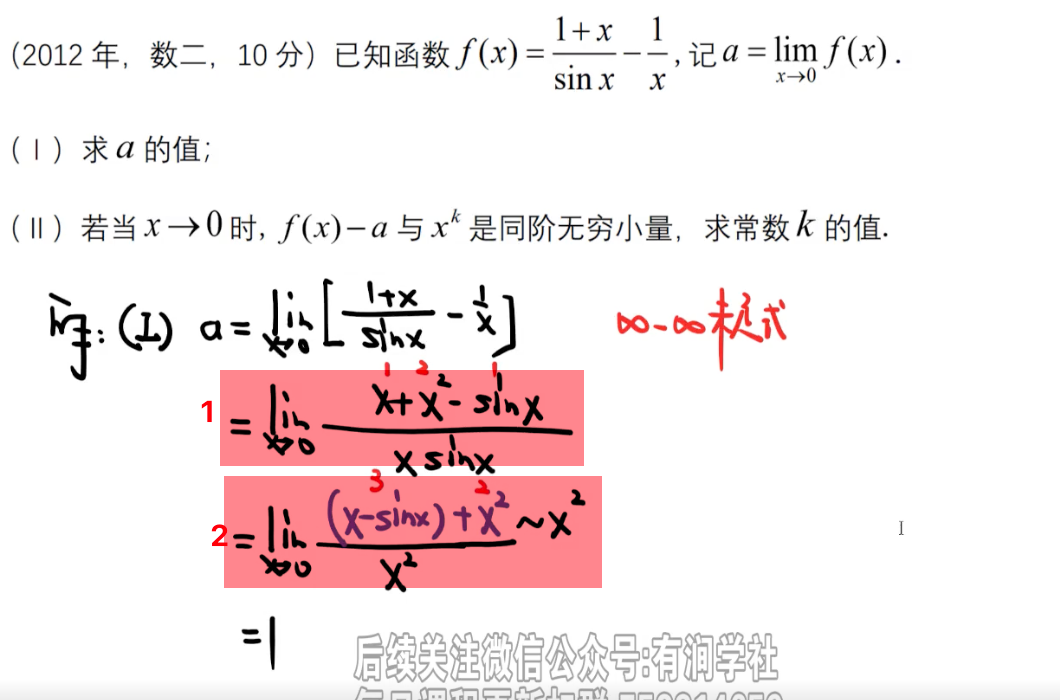 (2012 年，数二，10 分）已知函数 f(x) = (1+x)/(sin x) − 1/x , 记 a = lim_{x→0} f(x) .
（Ⅰ）求 a 的值；
（Ⅱ）若当 x → 0 时, f(x) − a 与 x^k 是同阶无穷小量，求常数 k 的值.
解: (I) a = lim_{x→0} [ (1+x)/(sinx) − 1/x ] ∞-∞ 型式
1 2 1
1 = lim_{x→0} (x+x²−sinx)/(x sinx)
3 2
2 = lim_{x→0} ((x−sinx)+x² ~ x²)/(x²)
=1
后续关注微信公众号:有润学社